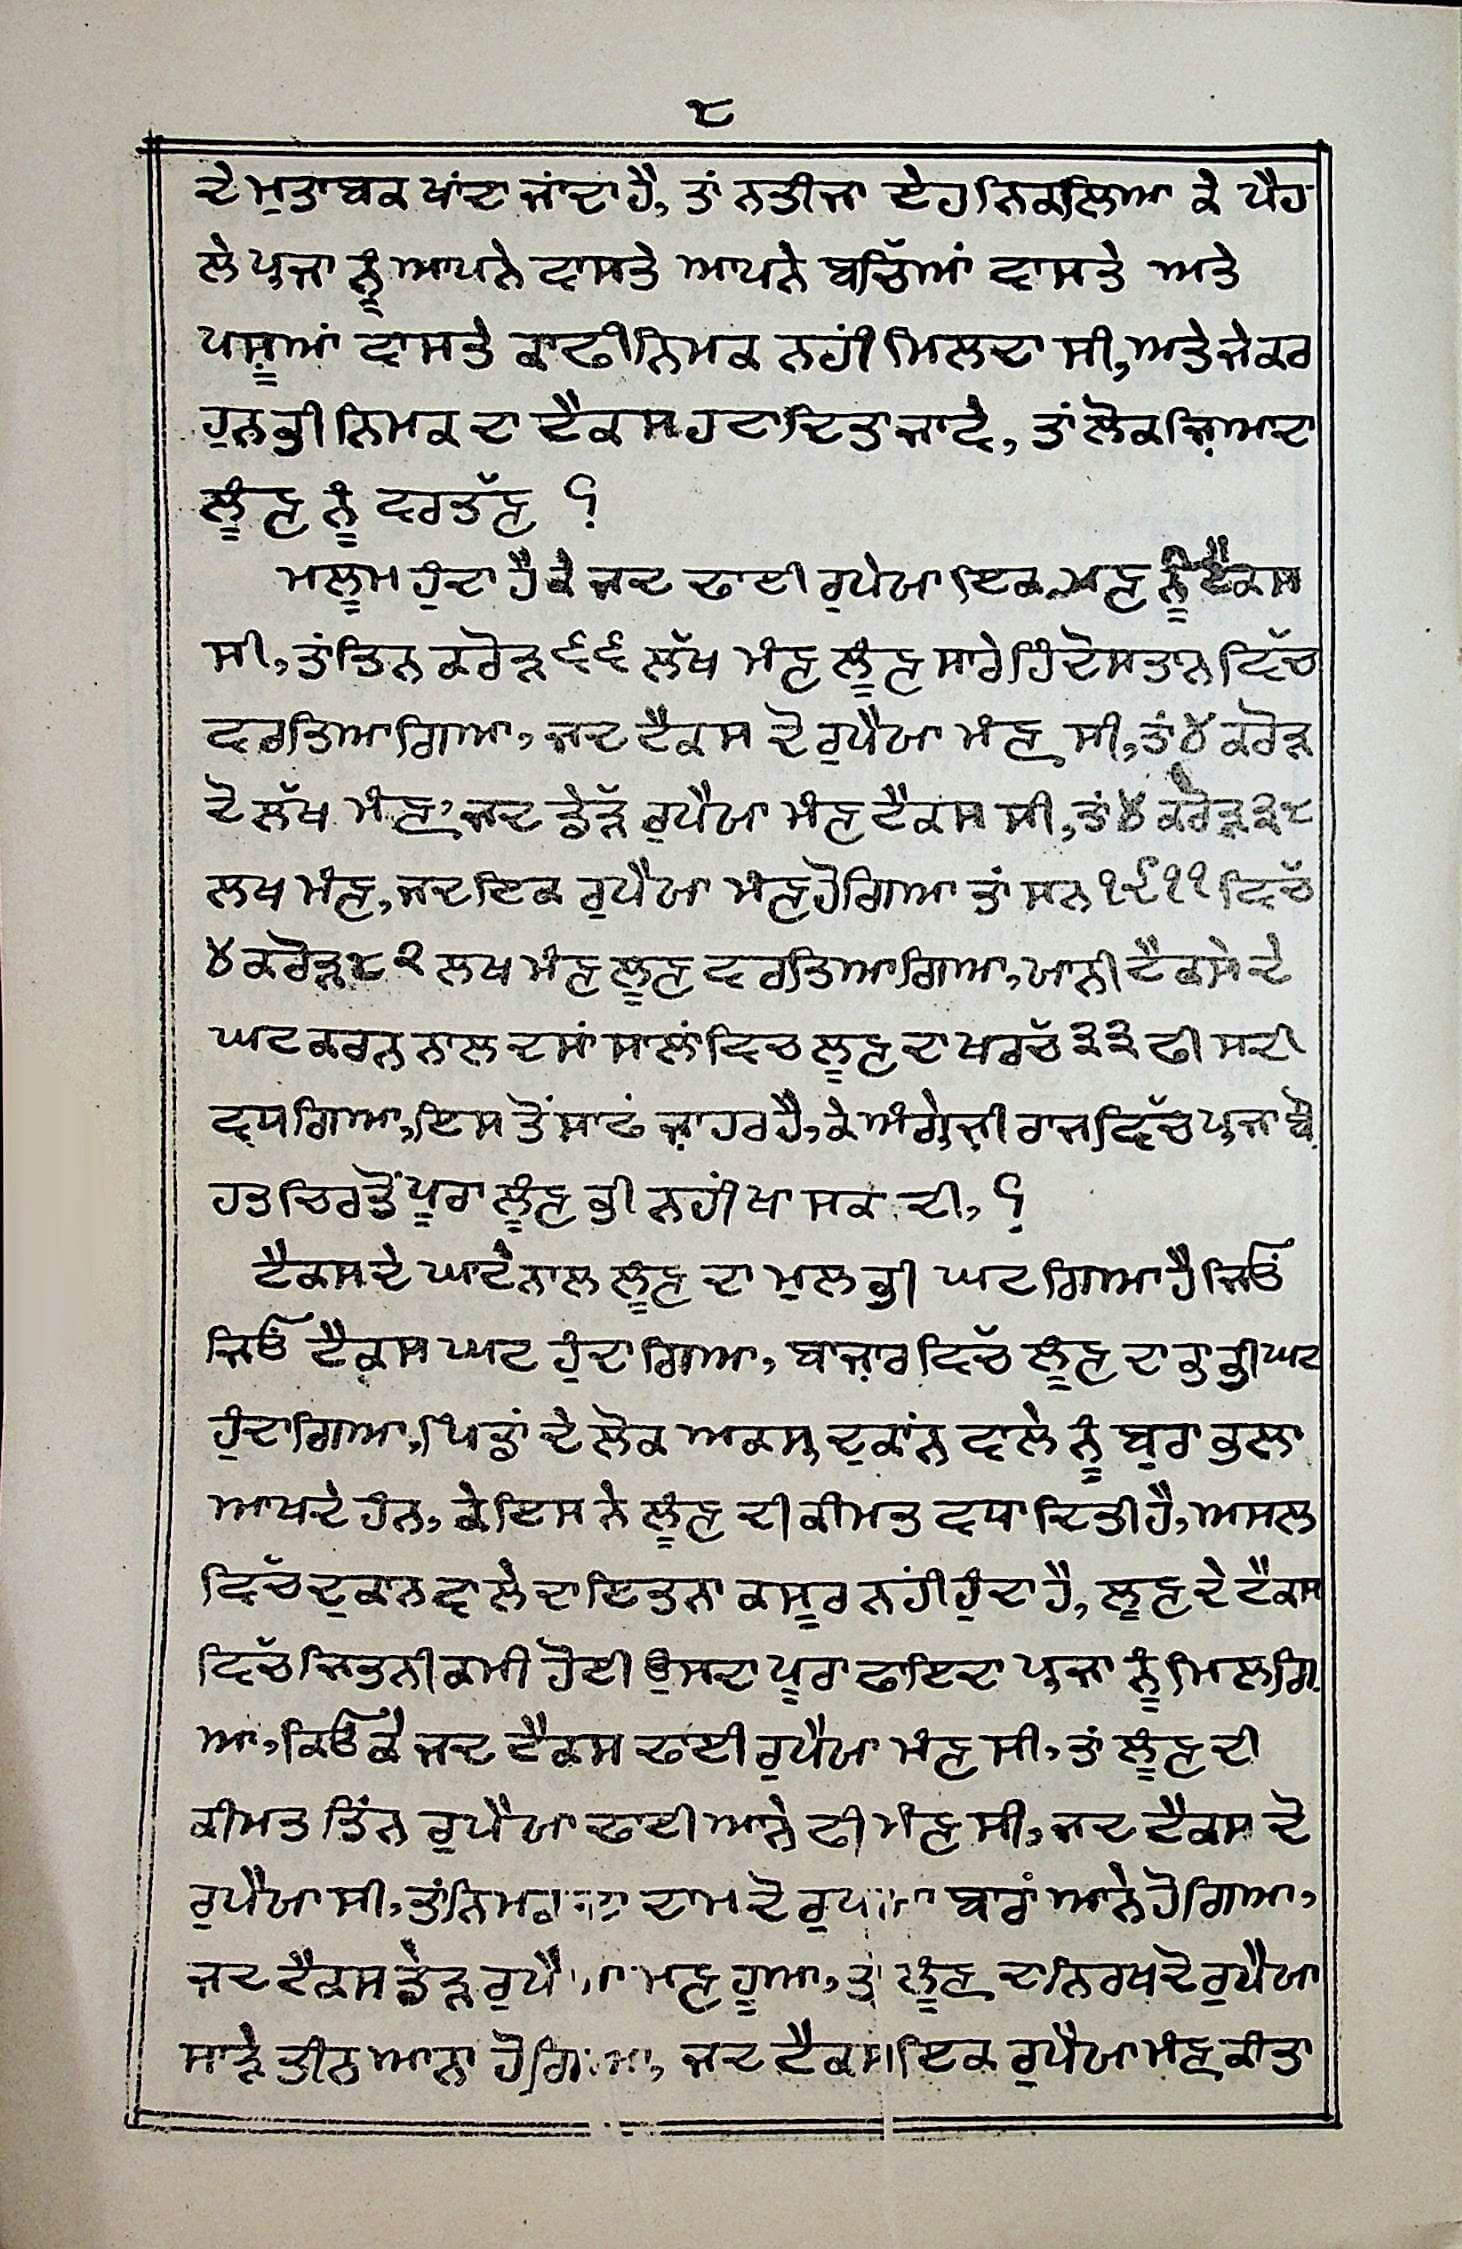 ੮
ਦੇ ਮੁਤਾਬਕ ਖਾਂਦਾ ਜਾਂਦਾ ਹੈ, ਤਾਂ ਨਤੀਜਾ ਏਹ ਨਿਕਲਿਆ ਕੇ ਪੈਹ
ਲੇ ਪ੍ਰਜਾ ਨੂੰ ਆਪਨੇ ਵਾਸਤੇ ਆਪਨੇ ਬਚਿੱਆਂ ਵਾਸਤੇ ਅਤੇ
ਪਸ਼ੂਆਂ ਵਾਸਤੇ ਕਾਫੀ ਨਿਮਕ ਨਹੀਂ ਮਿਲਦਾ ਸੀ, ਅਤੇ ਜੇਕਰ
ਹੁਨ ਭੀ ਨਿਮਕ ਦਾ ਟੈਕਸ ਹਟਾ ਦਿਤਾ ਜਾਵੇ, ਤਾਂ ਲੋਕ ਜ਼ਿਆਦਾ
ਲੂੰਣ ਨੂੰ ਵਰਤੱਣ ?
ਮਲੂਮ ਹੁੰਦਾ ਹੈ ਕੇ ਜਦ ਢਾਈ ਰੁਪੇਯਾ ਇਕ ਮਣ ਨੂੰ ਟੈਕਸ
ਸੀ, ਤਾਂ ਤਿਨ ਕਰੋੜ ੬੬ ਲੱਖ ਮੰਣ ਲੂੰਣ ਸਾਰੇ ਹਿੰਦੋਸਤਾਨ ਵਿੱਚ
ਵਰਤਿਆ ਗਿਆ, ਜਦ ਟੈਕਸ ਦੋ ਰੁਪੈਯਾ ਮੰਣ ਸੀ, ਤਾਂ ੪ ਕਰੋੜ
ਦੋ ਲੱਖ ਮੰਣ, ਜਦ ਡੇੜੱ ਰੁਪੈਯਾ ਮੰਣ ਟੈਕਸ ਸੀ, ਤਾਂ ੪ ਕਰੋੜ ੩੮
ਲਖ ਮੰਣ, ਜਦ ਇਕ ਰੁਪੈਯਾ ਮੰਣ ਹੋਗਿਆ ਤਾਂ ਸਨ ੧੯੧੧ ਵਿਚੱ
੪ ਕਰੋੜ ੮੨ ਲਖ ਮੰਣ ਲੂਣ ਵਰਤਿਆ ਗਿਆ, ਯਾਨੀ ਟੈਕਸੇ ਦੇ
ਘਟ ਕਰਨ ਨਾਲ ਦਸਾਂ ਸਾਲਾਂ ਵਿਚ ਲੂਣ ਦਾ ਖਰਚੱ ੩੩ ਫੀ ਸਦੀ
ਵਧ ਗਿਆ, ਇਸ ਤੋਂ ਸਾਫ ਜ਼ਾਹਰ ਹੈ, ਕੇ ਅੰਗ੍ਰੇਜ਼ੀ ਰਾਜ ਵਿੱਚ ਪ੍ਰਜਾ ਬੋ
ਹਤ ਚਿਰ ਤੋਂ ਪੂਰਾ ਲੂੰਣ ਭੀ ਨਹੀਂ ਖਾ ਸਕਦੀ, ?
ਟੈਕਸ ਦੇ ਘਾਟੇ ਨਾਲ ਲੂੰਣ ਦਾ ਮੁਲ ਭੀ ਘਟ ਗਿਆ ਹੈ ਜਿਓਂ
ਜਿਓਂ ਟੈਕਸ ਘਟ ਹੁੰਦਾ ਗਿਆ, ਬਾਜ਼ਾਰ ਵਿਚੱ ਲੂੰਣ ਦਾ ਭਾ ਭੀ ਘਟ
ਹੁੰਦਾ ਗਿਆ, ਪਿੰਡਾਂ ਦੇ ਲੋਕ ਅਕਸਰ ਦੁਕਾਂਨ ਵਾਲੇ ਨੂੰ ਬੁਰਾ ਭਲਾ
ਆਖਦੇ ਹੰਨ, ਕੇ ਇਸ ਨੇ ਲੂੰਣ ਦੀ ਕੀਮਤ ਵਧਾ ਦਿਤੀ ਹੈ, ਅਸਲ
ਵਿੱਚ ਦੁਕਾਨ ਵਾਲੇ ਦਾ ਇਤਨਾ ਕਸੂਰ ਨਹੀਂ ਹੁੰਦਾ ਹੈ, ਲੂਣ ਦੇ ਟੈਕਸ
ਵਿੱਚ ਜਿਤਨੀ ਕਮੀ ਹੋਈ ਉਸਦਾ ਪੂਰਾ ਫਾਇਦਾ ਪ੍ਰਜਾ ਨੂੰ ਮਿਲਗਿ
ਆ, ਕਿਓਂਕੇ ਜਦ ਟੈਕਸ ਢਾਈ ਰੁਪੈਯਾ ਮੰਣ ਸੀ, ਤਾਂ ਲੂੰਣ ਦੀ
ਕੀਮਤ ਤਿੰਨ ਰੁਪੈਯਾ ਢਾਈ ਆਨੇ ਫੀ ਮੰਣ ਸੀ, ਜਦ ਟੈਕਸ ਦੋ
ਰੁਪੈਯਾ ਸੀ, ਤਾਂ ਨਿਮਕ ਦਾਮ ਦੋ ਬਾਰਾਂ ਆਨੇ ਹੋਗਿਆ,
ਜਦ ਟੈਕਸ ਡੇੜ ਰੁਪੈਯਾ ਮਣ ਹੂਆ, ਤਾਂ ਲੂੰਣ ਦਾ ਨਿਰਖ ਦੋ ਰੁਪੈਯਾ
ਸਾੜੇ ਤੀਨ ਆਨਾ ਹੋਗਿਆ, ਜਦ ਟੈਕਸ ਇਕ ਰੁਪੈਯਾ ਮੰਣ ਕੀਤਾ